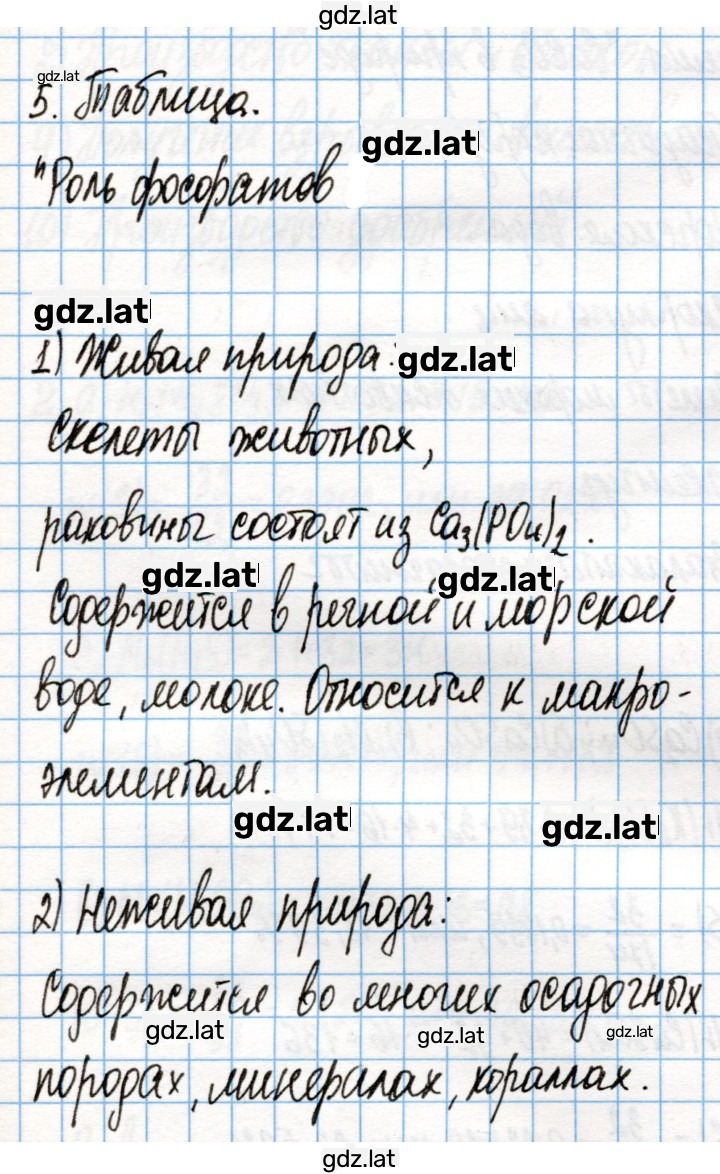 gdz.lat
gdz.lat
5. Таблица.
gdz.lat
"Роль фосфратов
gdz.lat
1) Живая природа:
gdz.lat
Скелеты животных,
раковины состоят из Ca3(PO4)2.
gdz.lat gdz.lat
Содержится в речной и морской
воде, молоке. Относится к макро-
элементам.
gdz.lat gdz.lat
2) Неживая природа:
Содержится во многих осадочных
gdz.lat gdz.lat gdz.lat
породах, минералах, кораллах.
gdz.lat